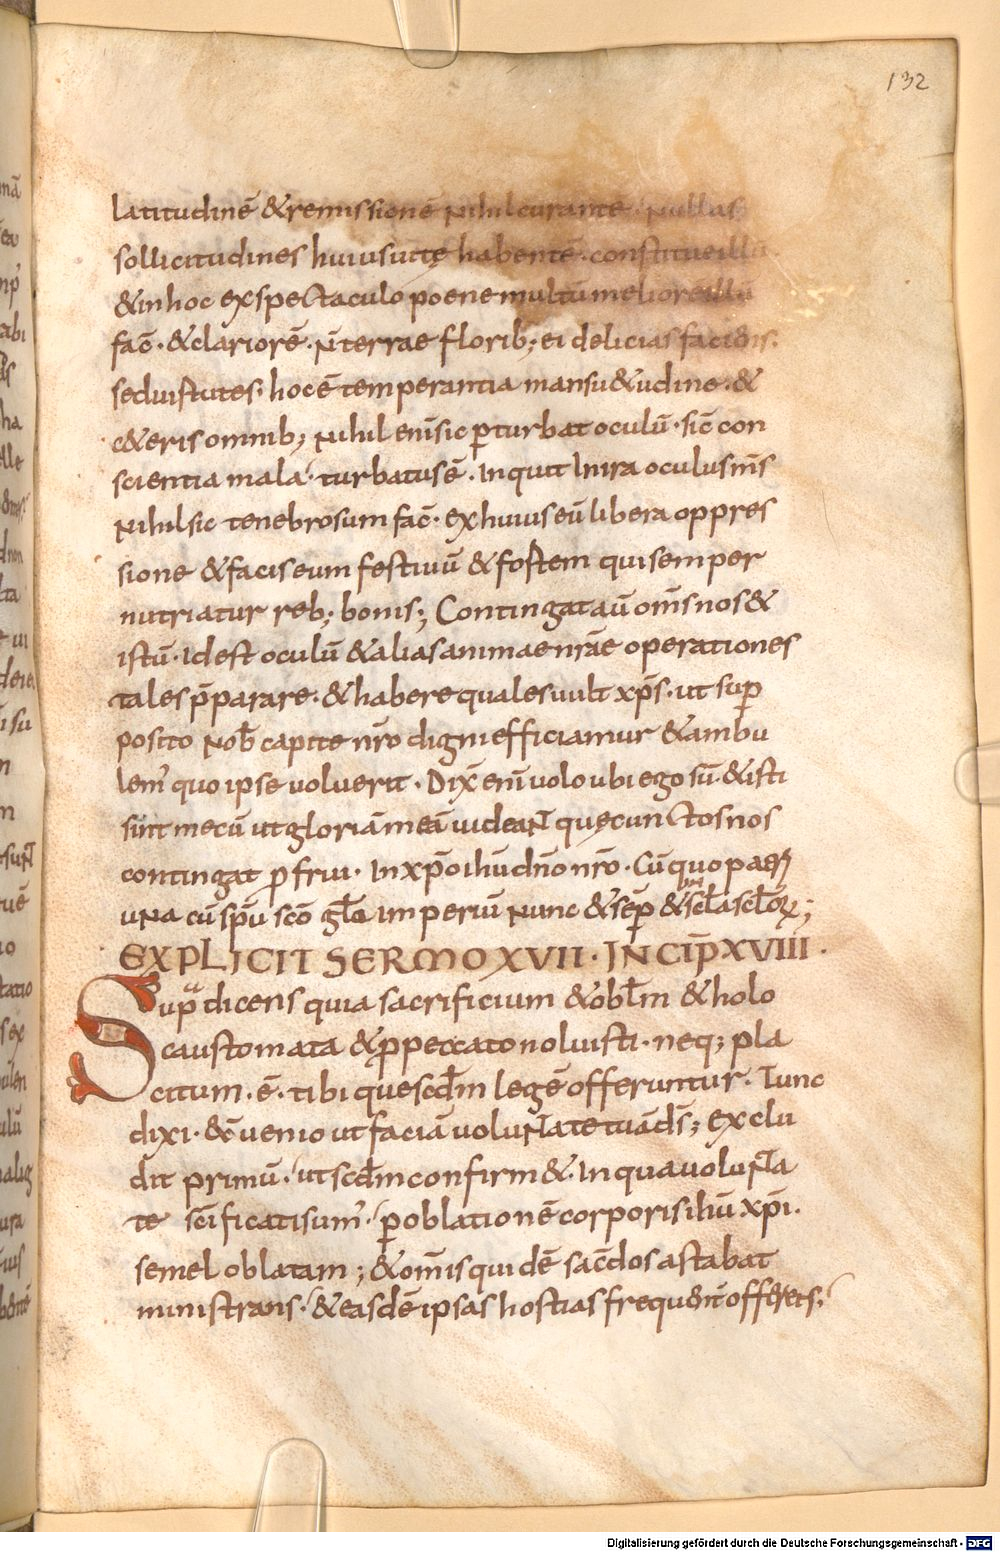 132
latitudinē &remissionē Nihil curantē. Nullas
sollicitudines huius uitę habentē. constitue illū.
&in hoc exspectaculo poene multū meliore illū
facˉ. &clariorē. Nˉ terrae florib; ei delicias facidis.
sed uistutes. hoc ē temperantia mansu&udine. &
c&eris omnib; Nihil enī sic p̱turbat oculū. sic̄ con
scientia mala. turbatus ē. Inquit In ira oculus m̄s
Nihil sic tenebrosum facˉ. ex huius eū libera oppres
sione &facis eum festiuū &fostem qui semper
nutriatur reb; bonis; Contingat aū om̄s nos &
istū. Idest oculū &alias animae nr̄ae operationes
tales p̄parare. &habere quales uult xp̄s. ut sup̱
posito Nob̄ capite nr̄o digni efficiamur &ambu
lem' quo ipse uoluerit. Dix̄ enī uolo ubi ego sū. &isti
sint mecū ut gloriā meā uideaNt quęcunctos nos
contingat p̱frui. In xp̄o ihū dn̄o nr̄o. Cū quo
uNa cū sp̄u sc̄o gl̄a imperiū Nunc &sēp̱ &
EXPLICIT SERMO XVII. INCIP̄ XVIII.
Sup̱a dicens quia sacrificium &obl̄m &holo
caustomata &p̱ peccato noluisti. neq; pla
citum. ē. tibi que scd̄m legē offeruntur. Tunc
dixi. &c̄ uenio ut faciā uoluNtate tuā ds̄; exclu
dit primū. ut scd̄m confirm&. In qua uoluNta
te sc̄ificati sum'. p̱ oblationē corporis ihū xp̄i.
semel oblatam; &om̄is quidē sac̄dos astabat
ministrans. &easdē ipsas hostias frequent̄ offerens.
Digitalisierung gefördert durch die Deutsche Forschungsgemeinschaft - DFG